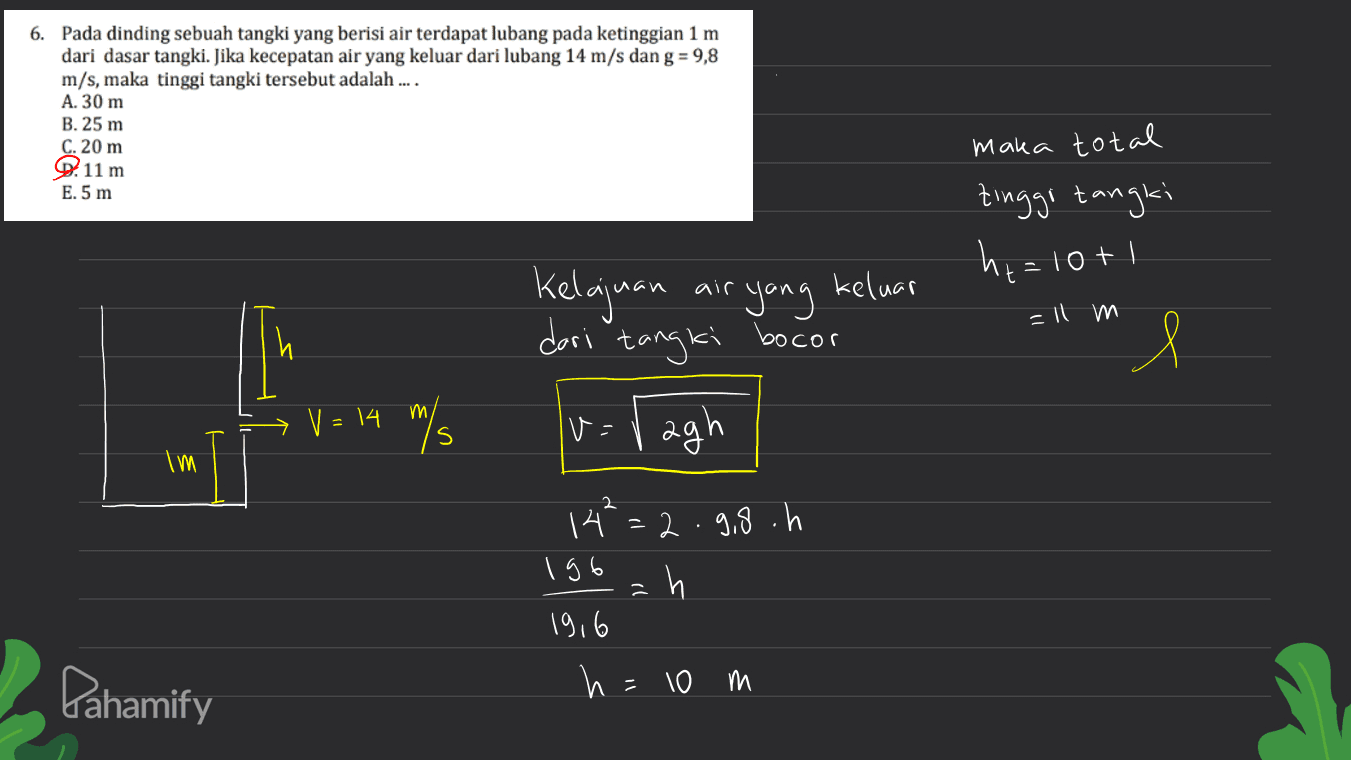 6. Pada dinding sebuah tangki yang berisi air terdapat lubang pada ketinggian 1 m
dari dasar tangki. Jika kecepatan air yang keluar dari lubang 14 m/s dan g = 9,8
m/s, maka tinggi tangki tersebut adalah ... .
A. 30 m
B. 25 m
C. 20 m
D. 11 m
E. 5 m
h
V = 14 m/s
1m
Kelajuan air yang keluar
dari tangki bocor
v = √2gh
14² = 2 . 9,8 . h
196/19,6 = h
h = 10 m
maka total
tinggi tangki
ht = 10 + 1
= 11 m
Pahamify